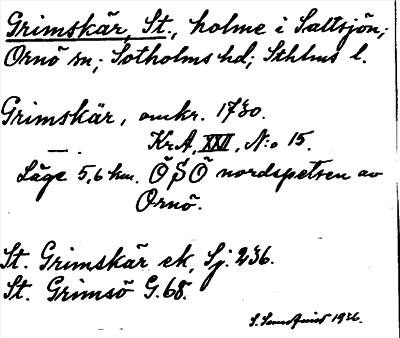 Grimskär, St., holme i Saltsjön,
Ornö sn; Sotholms hd; Sthlms l.
Grimskär, omkr. 1730.
— . KrA, XXII, N:o 15.
Läge 5,6 km. ÖSÖ nordspetsen av
Ornö.
St. Grimskär ek, Sj. 236.
St. Grimsö G. 68.
1936.